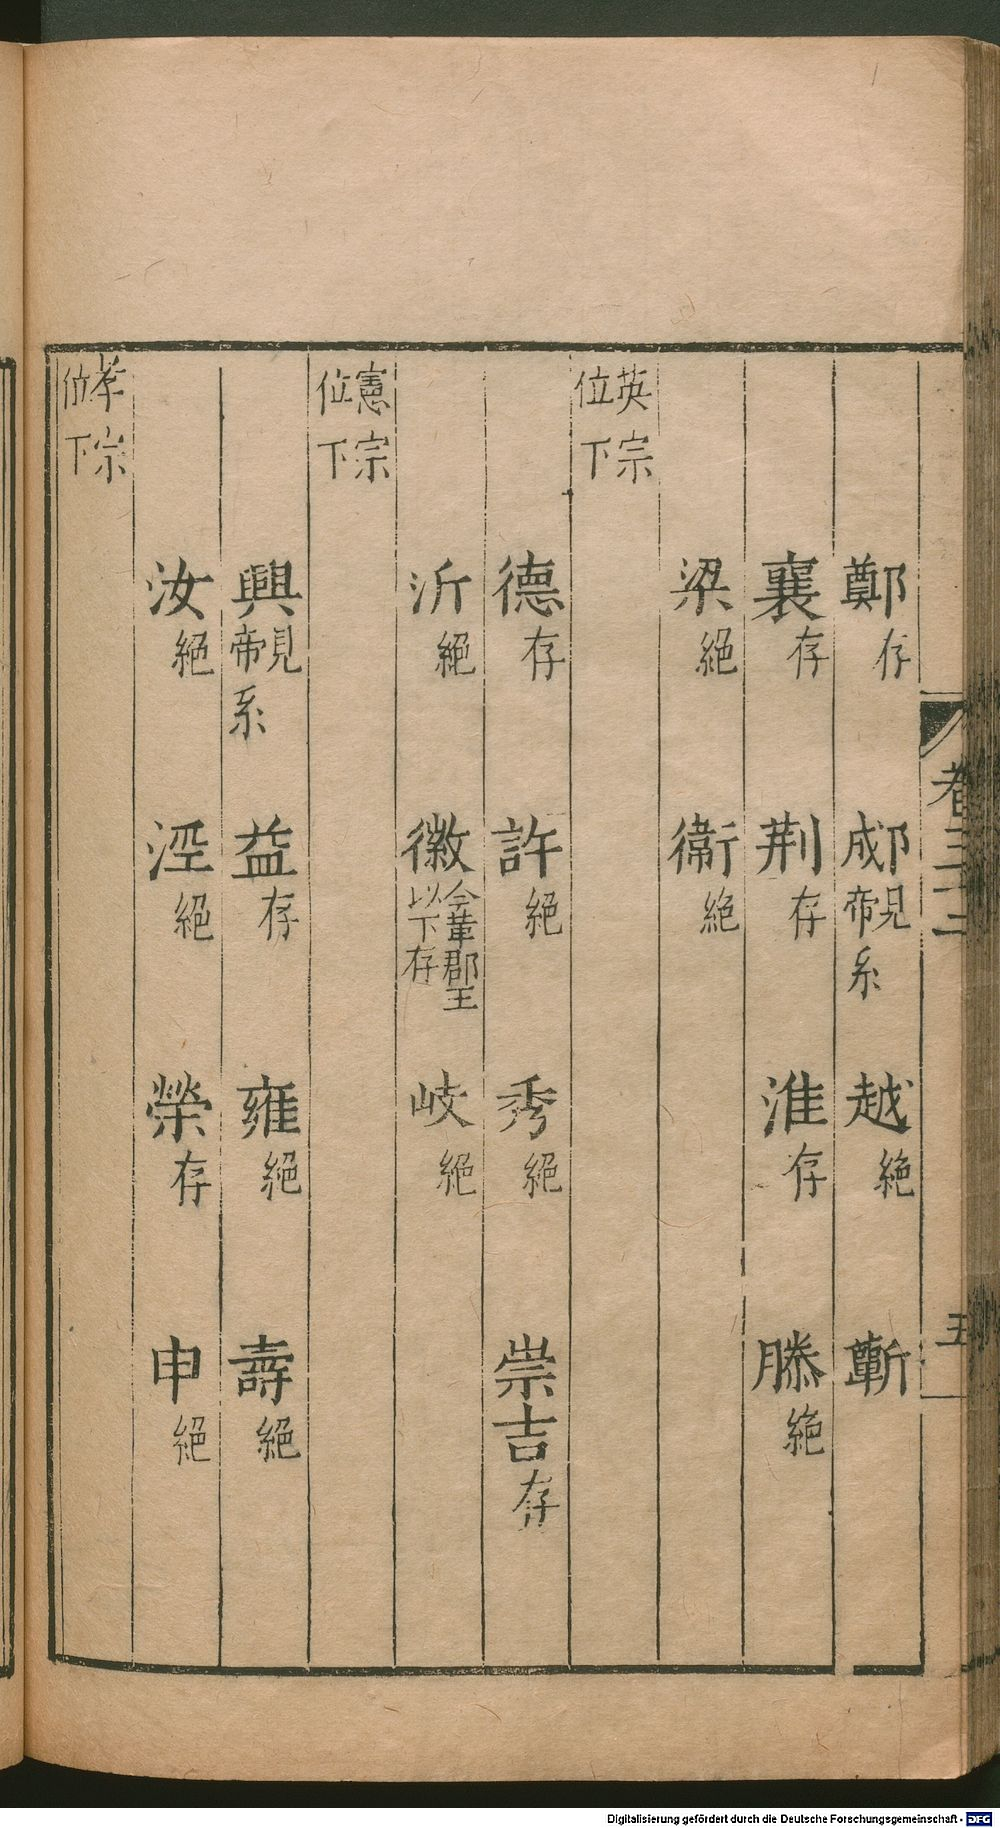 鄭存 郕見帝系 越絕 蘄
襄存 荆存 淮存 滕絕
梁絕 衞絕
英宗位下
德存 許絕 秀絕 崇吉存
沂絕 徽今華郡王以下存 岐絕
憲宗位下
興見帝系 益存 雍絕 壽絕
汝絕 涇絕 榮存 申絕
孝宗位下
卷三十二
五
Digitalisierung gefördert durch die Deutsche Forschungsgemeinschaft - DFG